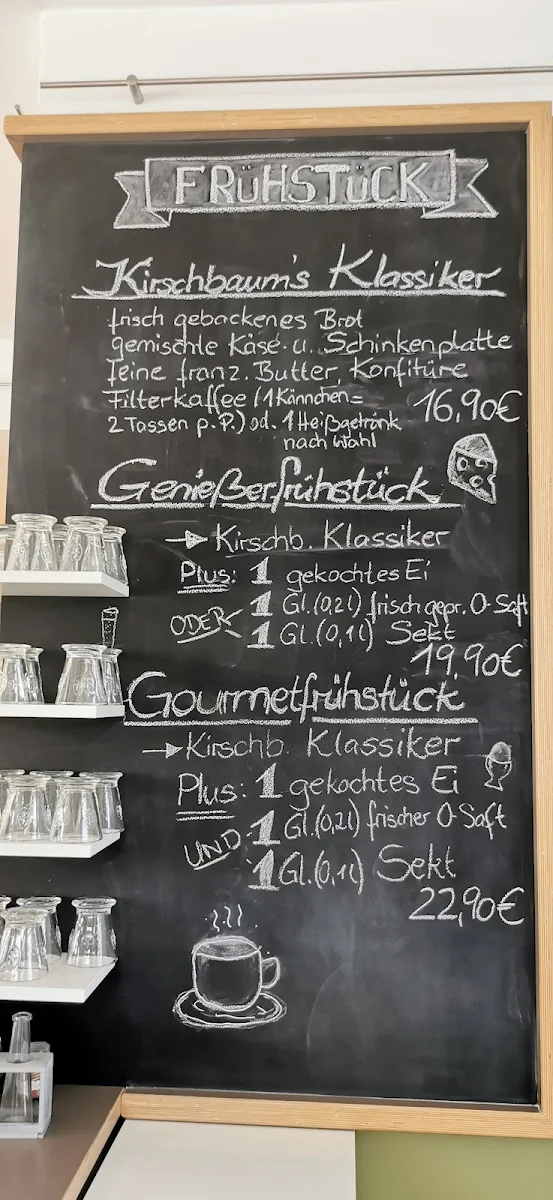 FRÜHSTÜCK
Kirschbaum's Klassiker
frisch gebackenes Brot
gemischte Käse- u. Schinkenplatte
feine franz. Butter, Konfitüre
Filterkaffee (1 Kännchen=
2 Tassen p.P.) od. 1 Heißgetränk
nach Wahl
16,90€
Genießerfrühstück
→ Kirschb. Klassiker
Plus: 1 gekochtes Ei
1 Gl.(0,2l) frisch gepr. O-Saft
ODER
1 Gl.(0,1l) Sekt
19,90€
Gourmetfrühstück
→ Kirschb. Klassiker
Plus: 1 gekochtes Ei
1 Gl.(0,2l) frischer O-Saft
UND
1 Gl.(0,1l) Sekt
22,90€